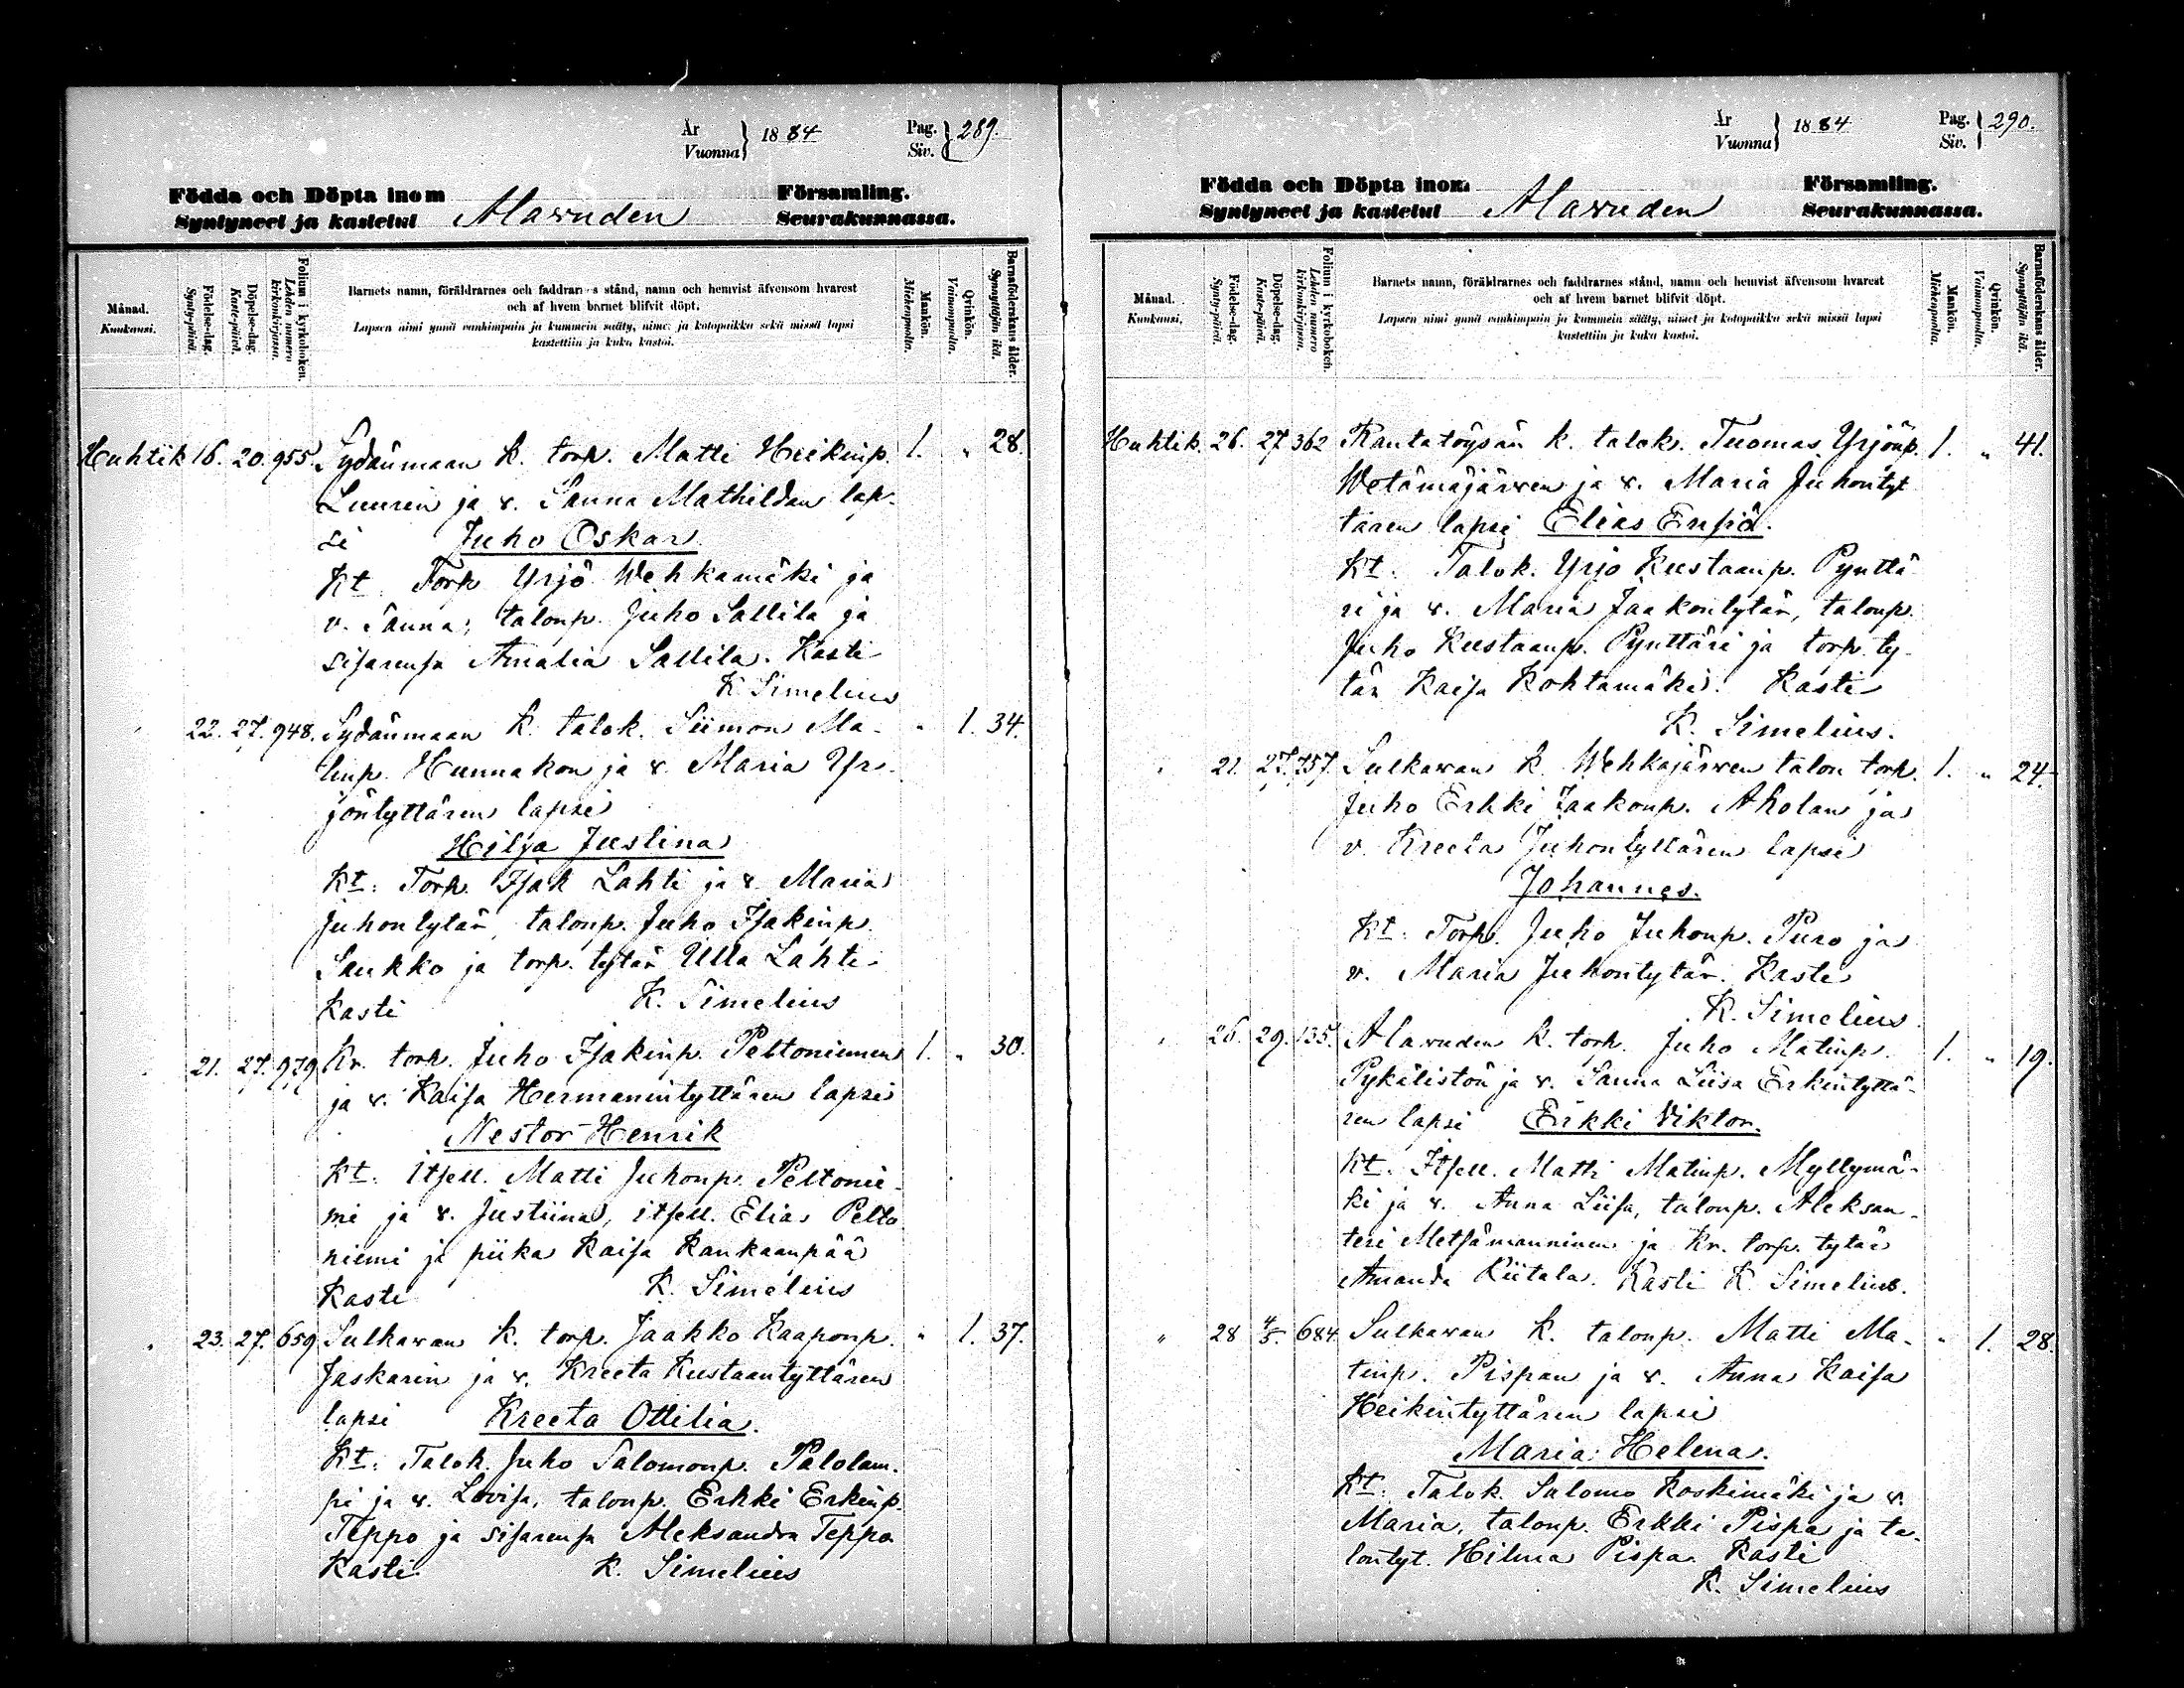 År
Vuonna } 1884 Pag.
Siv. } 289.
Födda och Döpta inom Församling.
Syntyneet ja kastetut Alavuden Seurakunnassa.
Månad.
Kuukausi.
Födelse-dag.
Synty-päivä.
Döpelse-dag.
Kaste-päivä.
Folium i kyrkoboken.
Lehden numero
kirkonkirjassa.
Barnets namn, föräldrarnes och faddrarnes stånd, namn och hemvist äfvensom hvarest
och af hvem barnet blifvit döpt.
Lapsen nimi ynnä vanhimpain ja kummein sääty, nimet ja kotopaikka sekä missä lapsi
kastettiin ja kuka kastoi.
Mankön.
Miehenpuolta.
Qvinkön.
Vaimonpuolta.
Barnaföderskans ålder.
Synnyttäjän ikä.
Huhtik 16. 20. 955. Sydänmaan k. torp. Matti Heikinp. 1. " 28.
Luurin ja v. Sanna Mathildan lap-
si Juho Oskar
Kt. Torp Yrjö Wehkamäki ja
v. Sanna; talonp. Juho Sallila ja
sisarensa Amalia Sallila. Kasti
K Simelius
22. 27. 948. Sydänmaan k. talok. Siimon Ma- " 1. 34.
tinp. Hunnakon ja v. Maria Yr-
jöntyttären lapsi
Hilja Justina
Kt: Torp. Isak Lahti ja v. Maria
Juhontytär, talonp. Juho Isakinp.
Saukko ja torp. tytär Ulla Lahti
Kasti K. Simelius
21. 27. 979 Kr. torp. Juho Isakinp. Peltoniemen 1. " 30.
ja v. Kaisa Hermanintyttären lapsi
Nestor Henrik
Kt: itsell. Matti Juhonp. Peltonie-
mi ja v. Justiina, itsell. Elias Pelto
niemi ja piika Kaisa Kankaanpää
Kasti K. Simelius
23. 27. 659 Sulkavan k. torp. Jaakko Kaaponp. " 1. 37.
Jaskarin ja v. Kreeta Kustaantyttären
lapsi Kreeta Ottilia.
Kt: Talok. Juho Salomonp. Palolam-
pi ja v. Lovisa, talonp. Erkki Erkinp.
Teppo ja sisarensa Aleksandra Teppo
Kasti K. Simelius
År
Vuonna } 1884 Pag.
Siv. } 290.
Födda och Döpta inom Församling.
Syntyneet ja kastetut Alavuden Seurakunnassa.
Månad.
Kuukausi.
Födelse-dag.
Synty-päivä.
Döpelse-dag.
Kaste-päivä.
Folium i kyrkoboken.
Lehden numero
kirkonkirjassa.
Barnets namn, föräldrarnes och faddrarnes stånd, namn och hemvist äfvensom hvarest
och af hvem barnet blifvit döpt.
Lapsen nimi ynnä vanhimpain ja kummein sääty, nimet ja kotopaikka sekä missä lapsi
kastettiin ja kuka kastoi.
Mankön.
Miehenpuolta.
Qvinkön.
Vaimonpuolta.
Barnaföderskans ålder.
Synnyttäjän ikä.
Huhtik. 26. 27. 362 Rantatöysän k. talok. Tuomas Yrjönp. 1. " 41.
Wetämäjärven ja v. Maria Juhontyt
tären lapsi Elias Ensiö.
Kt: Talok. Yrjö Kustaanp. Pynttä
ri ja v. Maria Jaakontytär, talonp.
Juho Kustaanp. Pynttäri ja torp. ty-
tär Kaisa Kohtamäki. Kasti
K. Simelius.
21. 27. 757. Sulkavan k. Wehkajärven talon torp. 1. " 24.
Juho Erkki Jaakonp. Aholan ja
v. Kreeta Juhontyttären lapsi
Johannes.
Kt: Torp. Juho Juhonp. Puro ja
v. Maria Juhontytär. Kasti
K. Simelius
26. 29. 135. Alavuden k. torp. Juho Matinp. 1. " 19.
Pykälistön ja v. Sanna Liisa Erkintyttä-
ren lapsi Erkki Viktor.
Kt: Itsell. Matti Matinp. Myllymä-
ki ja v. Anna Liisa, talonp. Aleksan-
teri Metsämanninen ja Kr. torp. tytär
Amanda Kiitala. Kasti K Simelius.
" 28 4/5. 684. Sulkavan k. talonp. Matti Ma- " 1. 28.
tinp. Pispan ja v. Anna Kaisa
Heikintyttären lapsi
Maria Helena.
Kt: Talok. Salomo Koskimäki ja v.
Maria, talonp. Erkki Pispa ja ta-
lontyt. Hilma Pispa. Kasti
K. Simelius